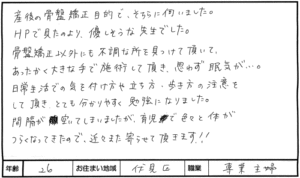 産後の骨盤矯正目的で、そちらに伺いました。
HPで見たより、優しそうな先生でした。
骨盤矯正以外にも不調な所を見つけて頂いて、
あったかく大きな手で施術して頂き、思わず眠気が…。
日常生活での気を付け方や立ち方・歩き方の注意を
して頂き とても分かりやすく勉強になりました。
間隔が空いてしまいましたが、育児で色々と体が
つらくなってきたので、近々また寄らせて頂きます!!
年齢 26 お住まい地域 伏見区 職業 専業主婦